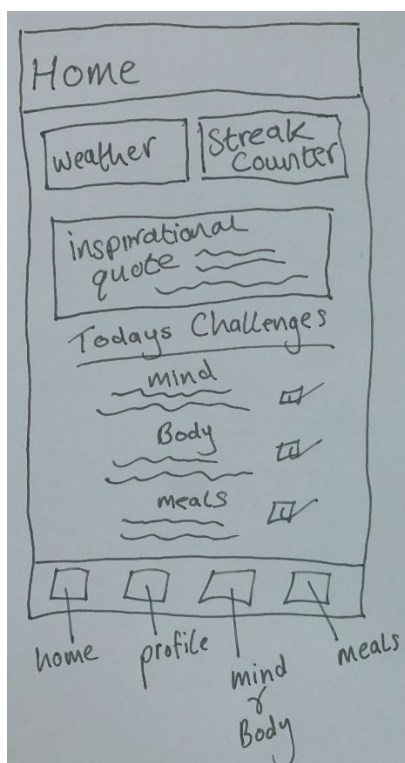 Home
weather
Streak
Counter
inspirational
quote
Todays Challenges
mind
Body
meals
home
profile
mind
&
Body
meals